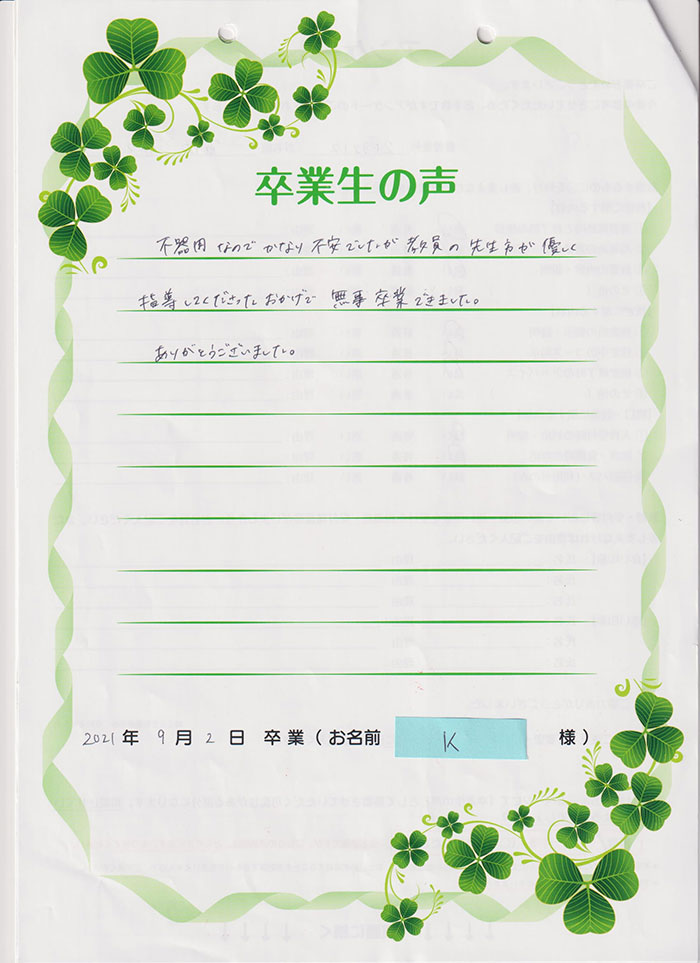 卒業生の声
不器用なのでかなり不安でしたが教員の先生方が優しく
指導してくださったおかげで無事卒業できました。
ありがとうございました。
2021年 9月 2日 卒業(お名前 K 様)